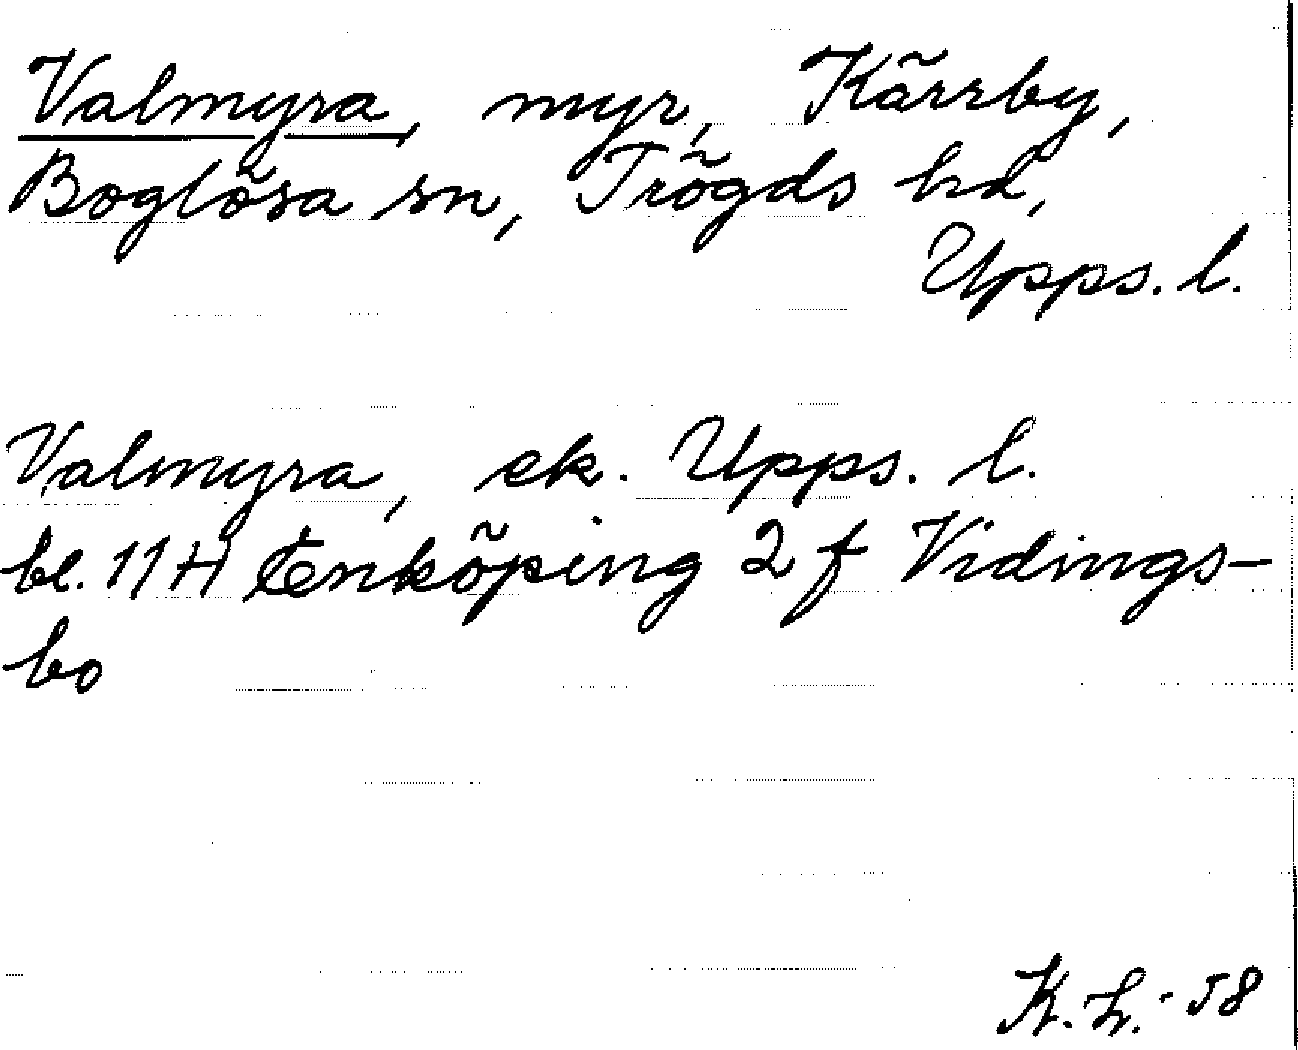 Valmyra, myr, Kärrby,
Boglösa sn, Trögds hd,
Upps. l.
Valmyra, ek. Upps. l.
bl. 11H Enköping 2 f Vidings-
bo
K. L. -58